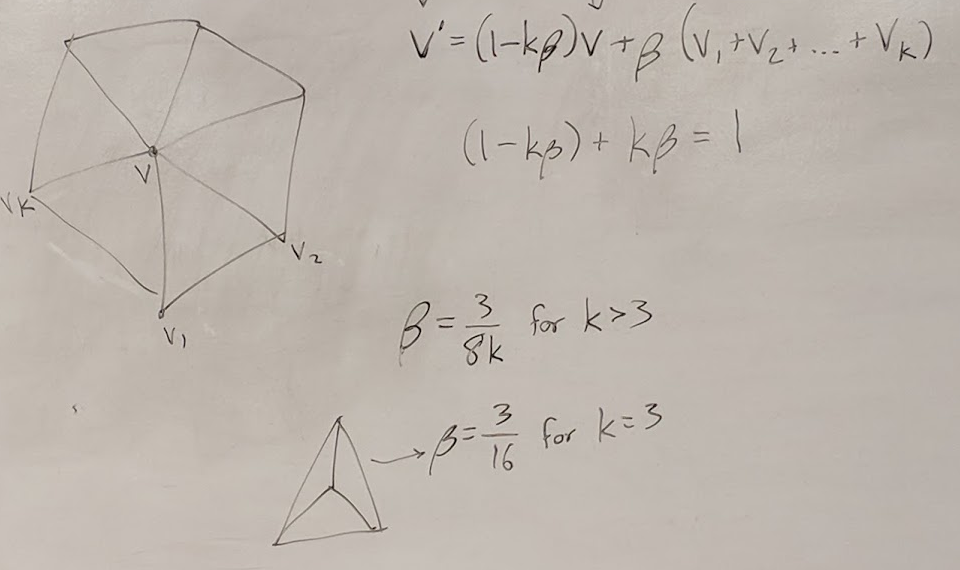 V' = (1-kβ)V + β (V₁ + V₂ + ... + Vₖ)
(1-kβ) + kβ = 1
V
Vₖ
V₂
V₁
β = 3/8k for k>3
β = 3/16 for k=3